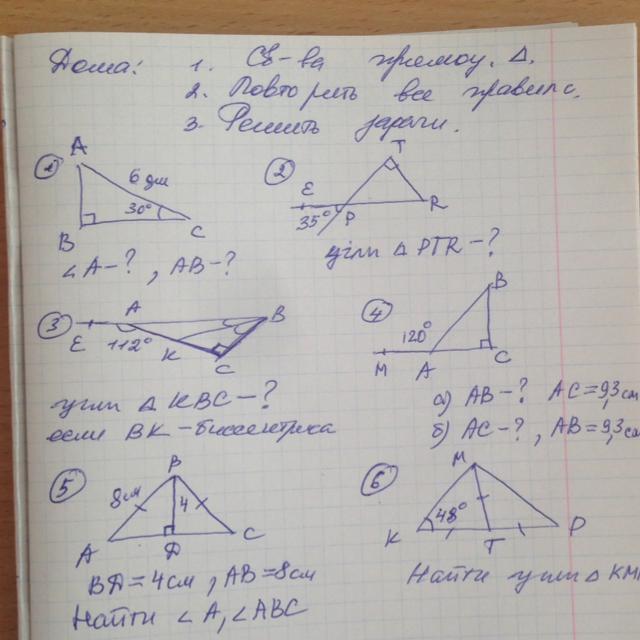 Дома: 1. Св-ва прямоу. Δ.
2. Повторить все правила.
3. Решить задачи.
1
A
6 дм
30°
B
C
∠A-?, AB-?
2
T
E
35°
P
R
углы Δ PTR-?
3
A
B
E
112°
K
C
углы Δ KBC-?
если BK-биссектриса
4
B
120°
M
A
C
а) AB-? AC=9,3 см
б) AC-?, AB=9,3 см
5
B
8см
4
A
D
C
BD=4см, AB=8см
Найти ∠A, ∠ABC
6
M
48°
K
T
P
Найти углы Δ KM